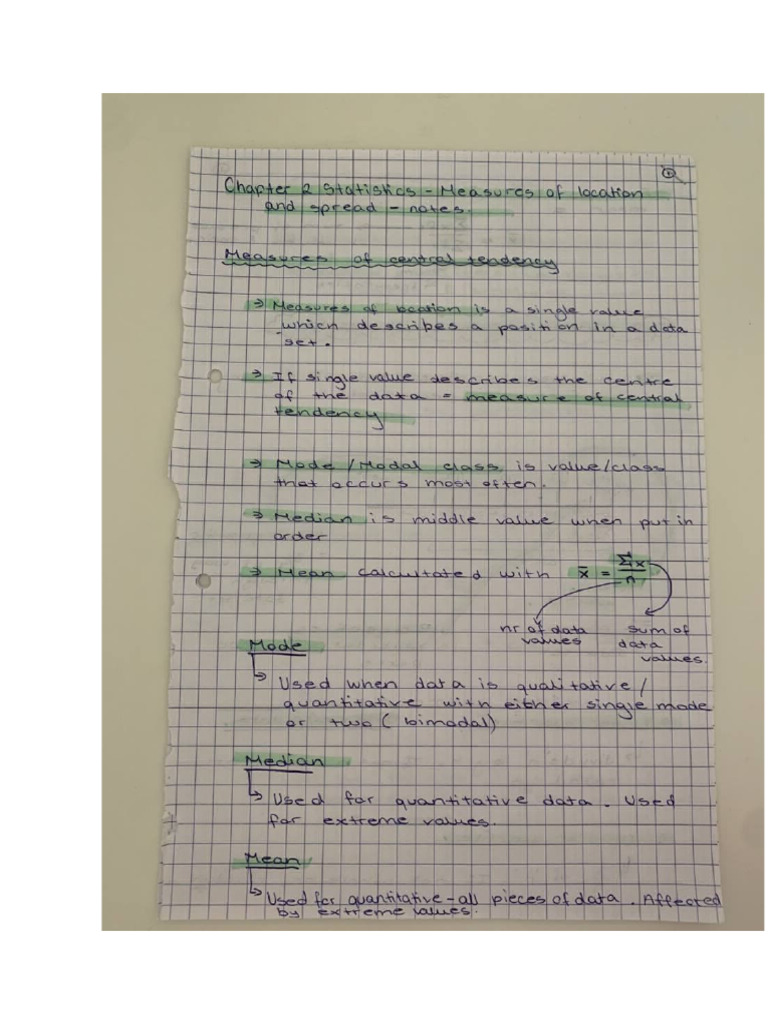 ①
Chapter 2 Statistics - Measures of location
and spread - notes.
Measures of central tendency
→ Measures of location is a single value
which describes a position in a data
set.
→ If single value describes the centre
of the data = measure of central
tendency
→ Mode / Modal class is value/class
that occurs most often.
→ Median is middle value when put in
order
→ Mean calcultated with x̄ = Σx/n
nr of data values
sum of data values.
Mode
↳ Used when data is qualitative/
quantitative with either single mode
or two (bimodal)
Median
↳ Used for quantitative data. Used
for extreme values.
Mean
↳ Used for quantitative - all pieces of data. Affected
by extreme values.